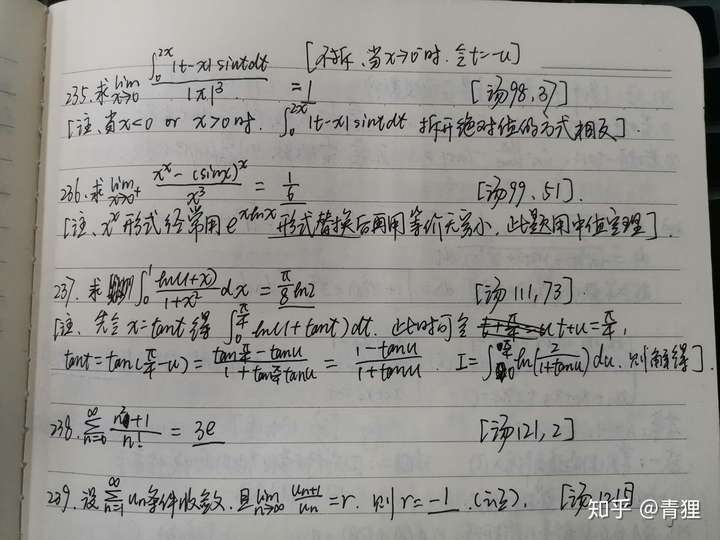 235. 求 lim_{x→0} ∫_0^{2x} |t-x| sint dt / |x|³ = 1 [不拆、当x→0⁻时、令t=-u] [汤98,37]
[注、当x<0 or x>0时. ∫_0^{2x} |t-x| sint dt 拆开绝对值的方式相反].
236. 求 lim_{x→0⁺} (x^x - (sinx)^x) / x³ = 1/6 [汤99,51].
[注、x^x 形式经常用 e^{xlnx} 形式替换后再用等价无穷小, 此题用中值定理].
237. 求 ∫_0^1 ln(1+x)/(1+x²) dx = π/8 ln2 [汤111,73].
[注、先令 x=tant 得 ∫_0^{π/4} ln(1+tant)dt. 此时可令 t+u=π/4,
tant=tan(π/4-u) = (tanπ/4 - tanu)/(1+tanπ/4 tanu) = (1-tanu)/(1+tanu). I=∫_0^{π/4} ln(2/(1+tanu)) du. 则解得].
238. ∑_{n=0}^∞ (n²+1)/n! = 3e [汤121,2]
239. 设 ∑_{n=1}^∞ u_n 条件收敛. 且 lim_{n→∞} u_{n+1}/u_n = r. 则 r = -1. (记). [汤121
知乎 @青狸